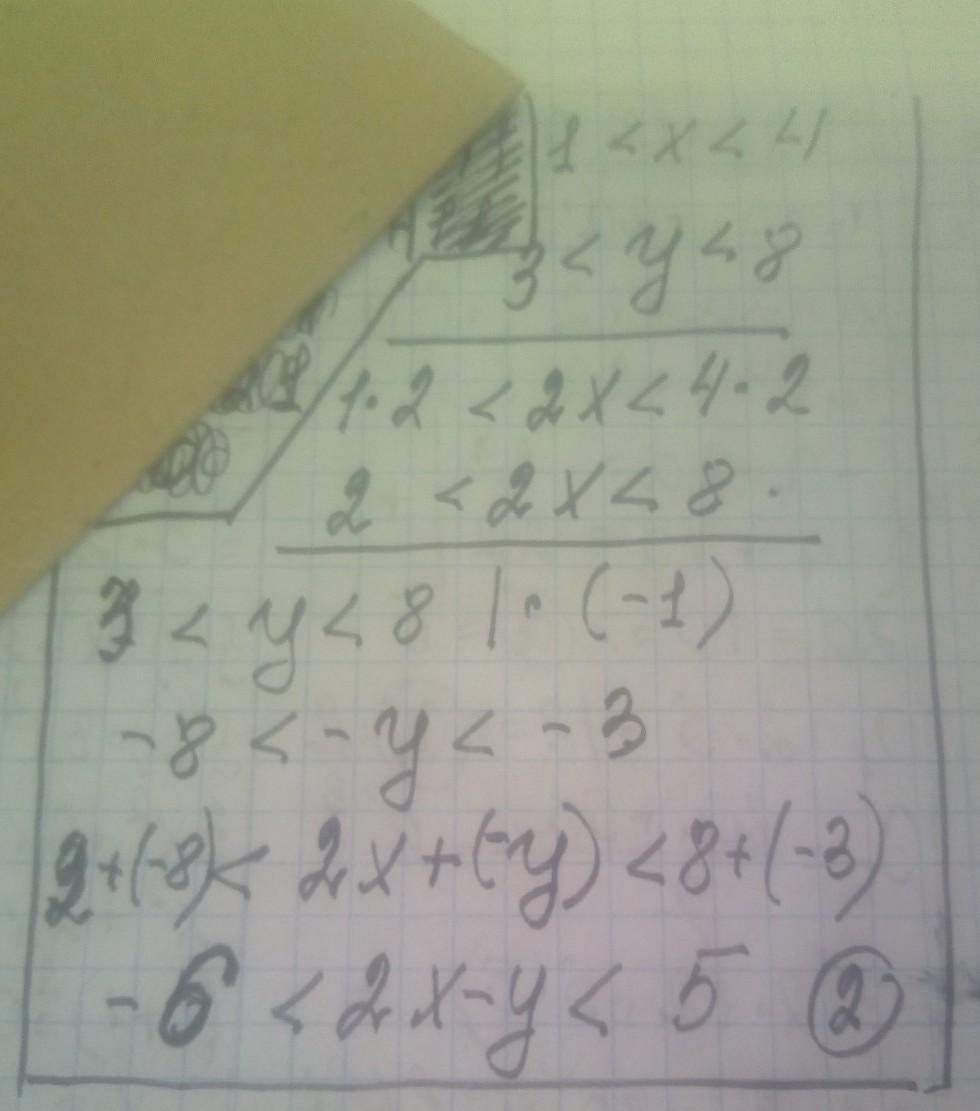 1 < x < 4
3 < y < 8
1·2 < 2x < 4·2
2 < 2x < 8.
3 < y < 8 |·(-1)
-8 < -y < -3
2+(-8) < 2x+(-y) < 8+(-3)
-6 < 2x-y < 5 ②